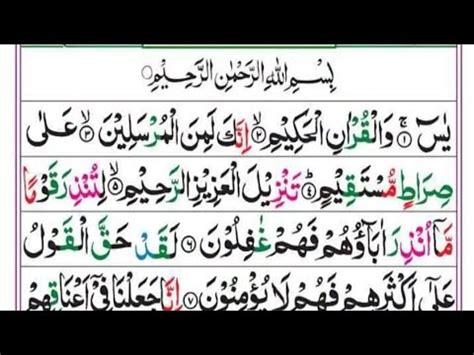 بِسْمِ اللهِ الرَّحْمٰنِ الرَّحِيْمِ
يٰسٓ ۚ﴿۱﴾ وَالْقُرْاٰنِ الْحَكِيْمِ ۙ﴿۲﴾ اِنَّكَ لَمِنَ الْمُرْسَلِيْنَ ۙ﴿۳﴾ عَلٰى
صِرَاطٍ مُّسْتَقِيْمٍ ؕ﴿۴﴾ تَنْزِيْلَ الْعَزِيْزِ الرَّحِيْمِ ۙ﴿۵﴾ لِتُنْذِرَ قَوْمًا
مَّاۤ اُنْذِرَ اٰبَآؤُهُمْ فَهُمْ غٰفِلُوْنَ ﴿۶﴾ لَقَدْ حَقَّ الْقَوْلُ
عَلٰۤى اَكْثَرِهِمْ فَهُمْ لَا يُؤْمِنُوْنَ ﴿۷﴾ اِنَّا جَعَلْنَا فِيْۤ اَعْنَاقِهِمْ